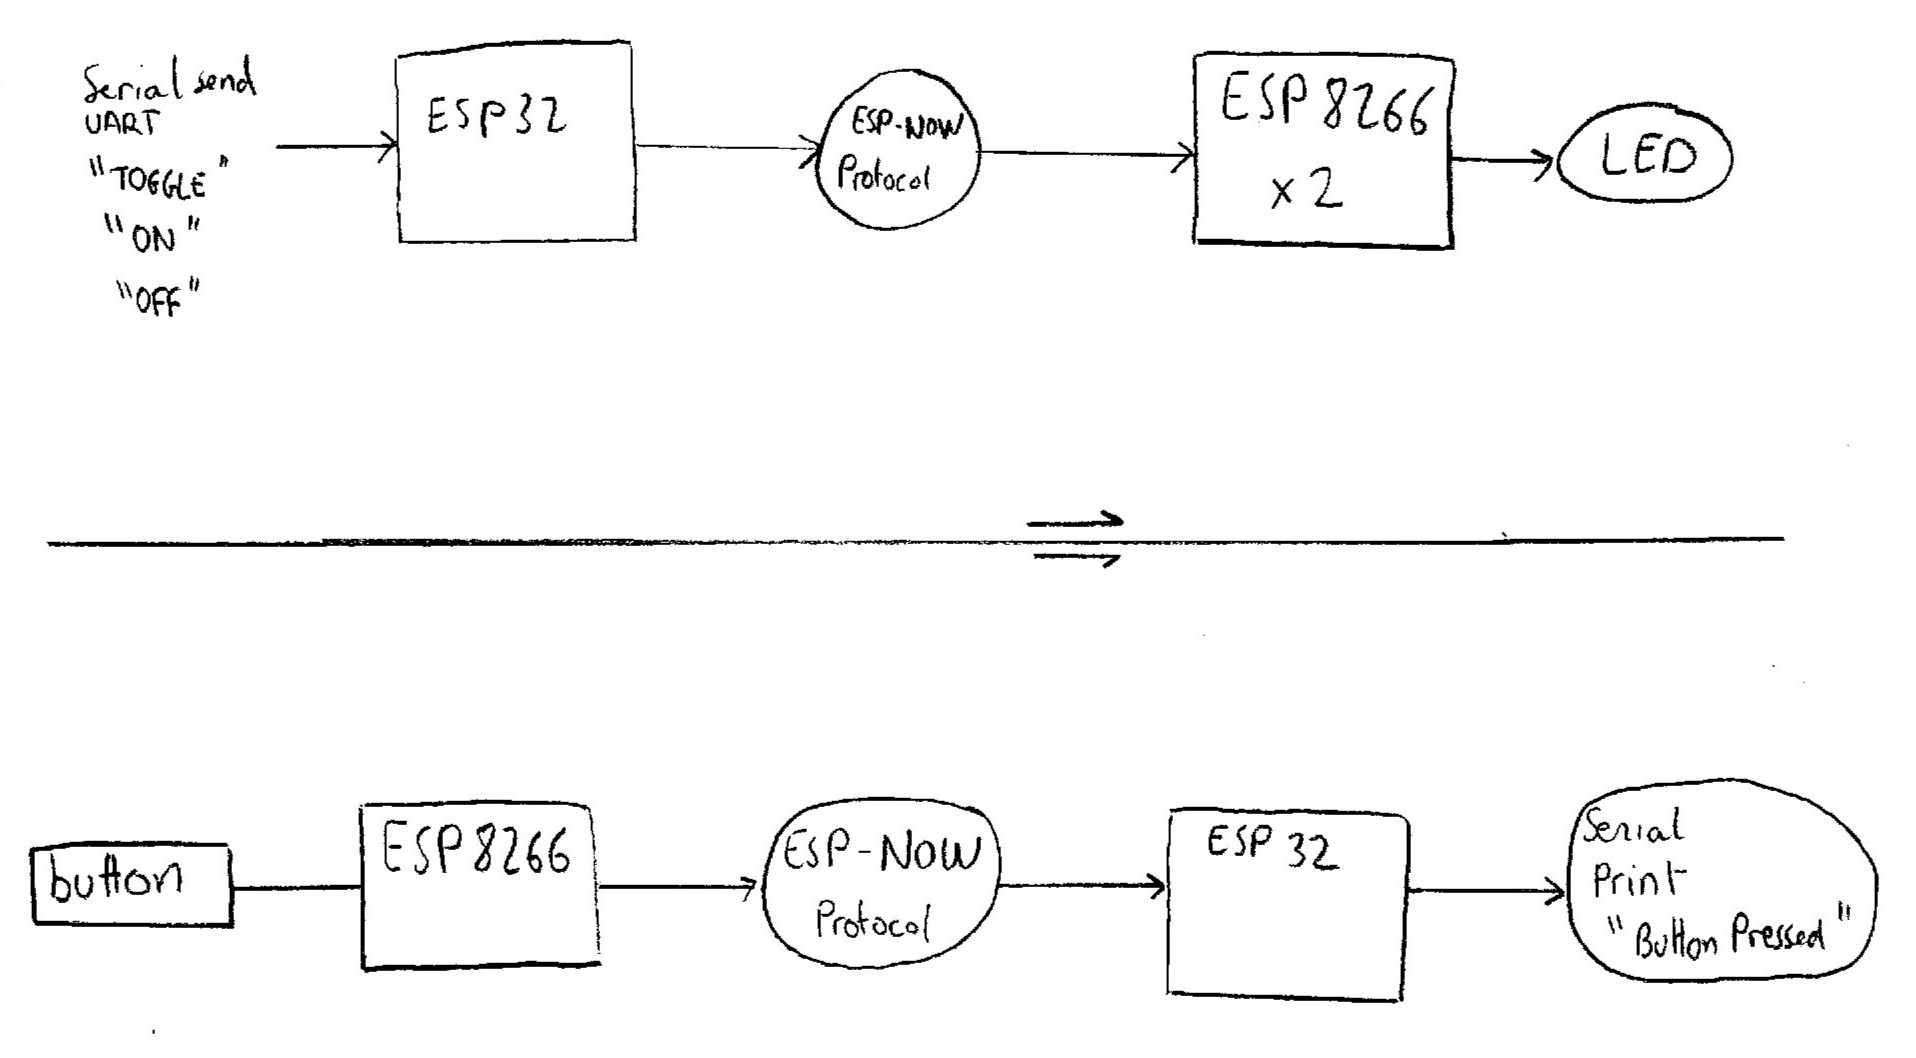 Serial send
UART
"TOGGLE"
"ON"
"OFF"
ESP32
ESP-NOW
Protocol
ESP8266
x 2
LED
button
ESP8266
ESP-NOW
Protocol
ESP 32
Serial
Print
"Button Pressed"